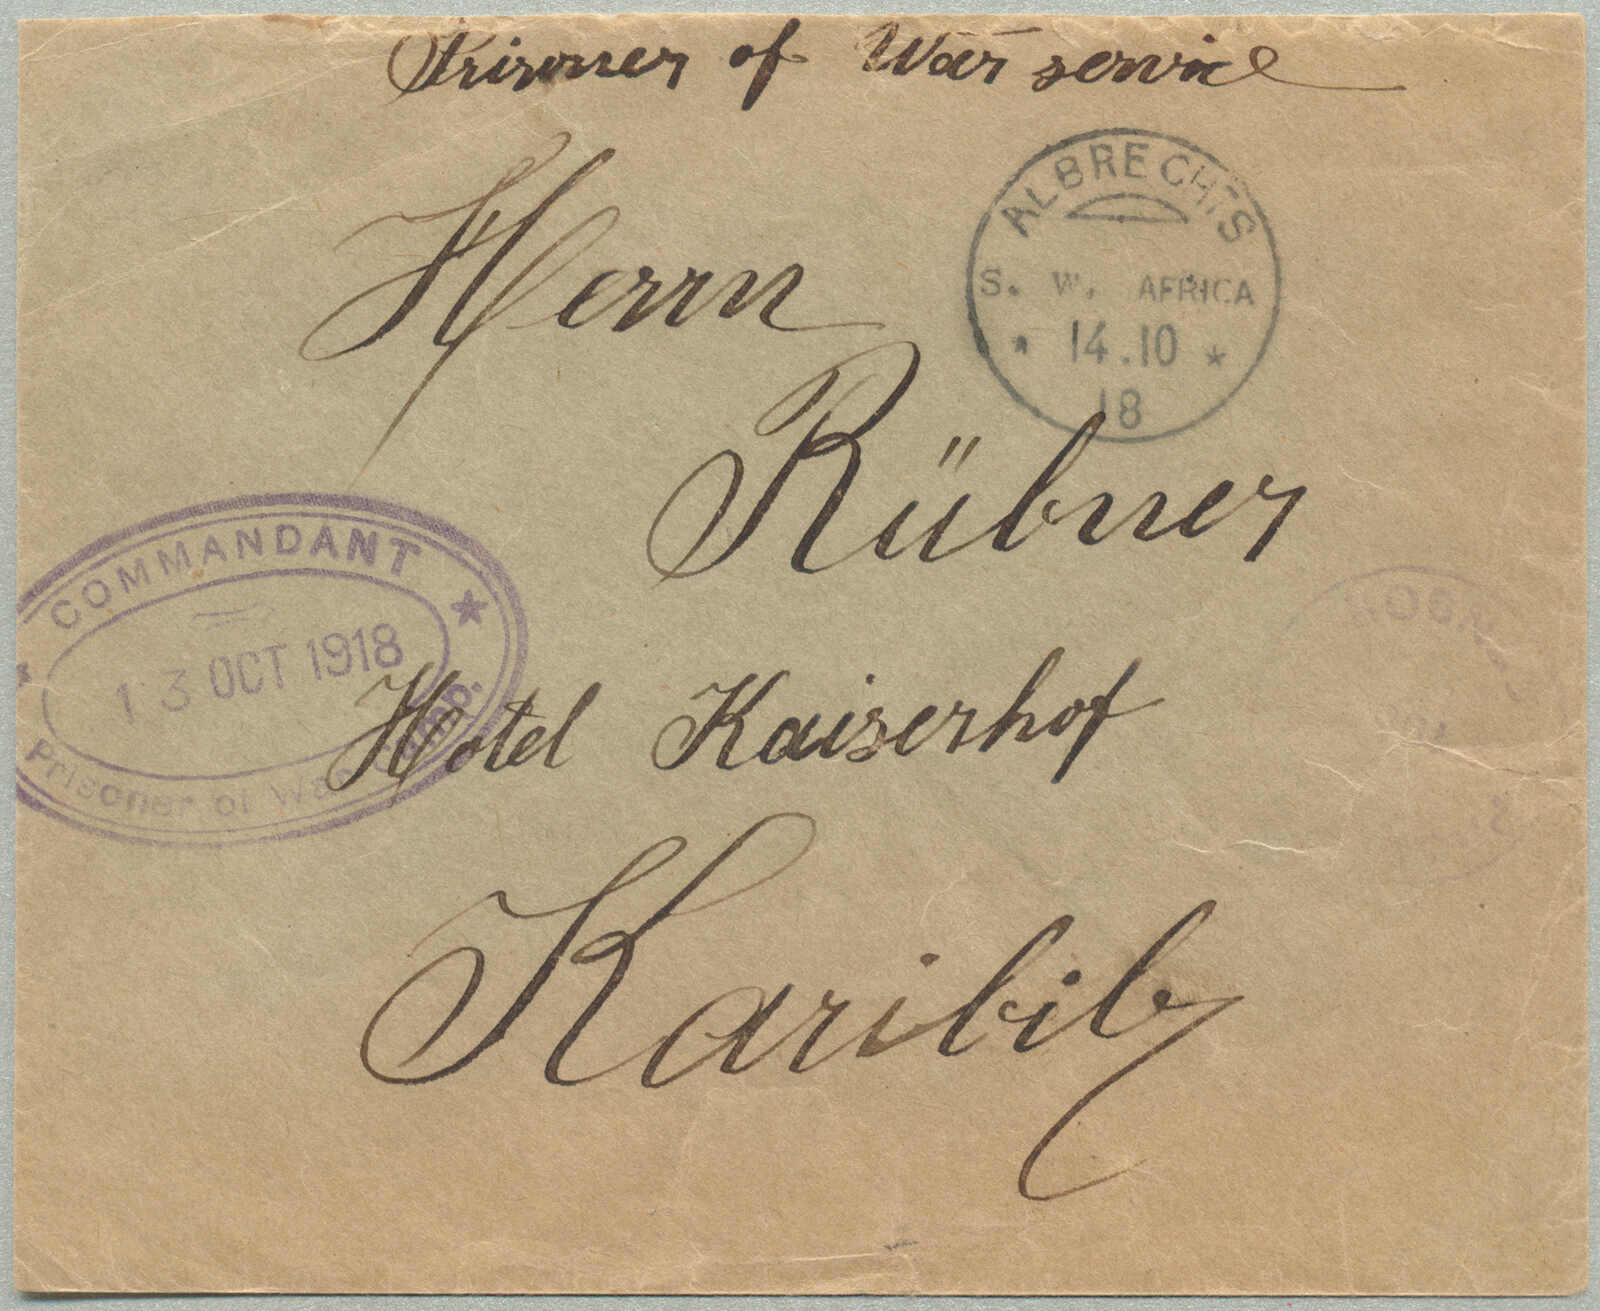 Prisoner of War service
ALBRECHTS
S. W. AFRICA
* 14.10 *
18
Herrn
Rübner
COMMANDANT
13 OCT 1918
Prisoner of War Camp.
Hotel Kaiserhof
Karibib